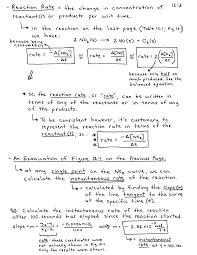 12-3
- Reaction Rate = the change in concentration of
reactant(s) or products per unit time.
↳ in the reaction on the last page (Table 12.1; Fig. 12.1)
we have:
2 NO₂(g) → 2 NO(g) + O₂(g)
because being
consumed
rate = -Δ[NO₂]/Δt = rate = Δ[NO]/Δt = rate = Δ[O₂]/Δt
because only half as
much produced. See the
balanced equation.
* So, the reaction rate, or "rate", can be written in
terms of any of the reactants or in terms of any
of the products.
↳ To be consistent however, it's customary to
represent the reaction rate in terms of the
reactant(s), so: * rate = -Δ[NO₂]/Δt
- An Examination of Figure 12.1 on the Previous Page.
↳ at any single point on the NO₂ curve, we can
calculate the instantaneous rate of the reaction.
↳ calculated by finding the slope(m)
of the line tangent to the curve
at the specific time (t).
eg: Calculate the instantaneous rate of the reaction
after 100. seconds has elapsed since the reaction started.
slope = m =
note: these coordinates were
not actually shown in Fig 12.1.
Only the results were shown.
instantaneous
rate at t = 100. sec.